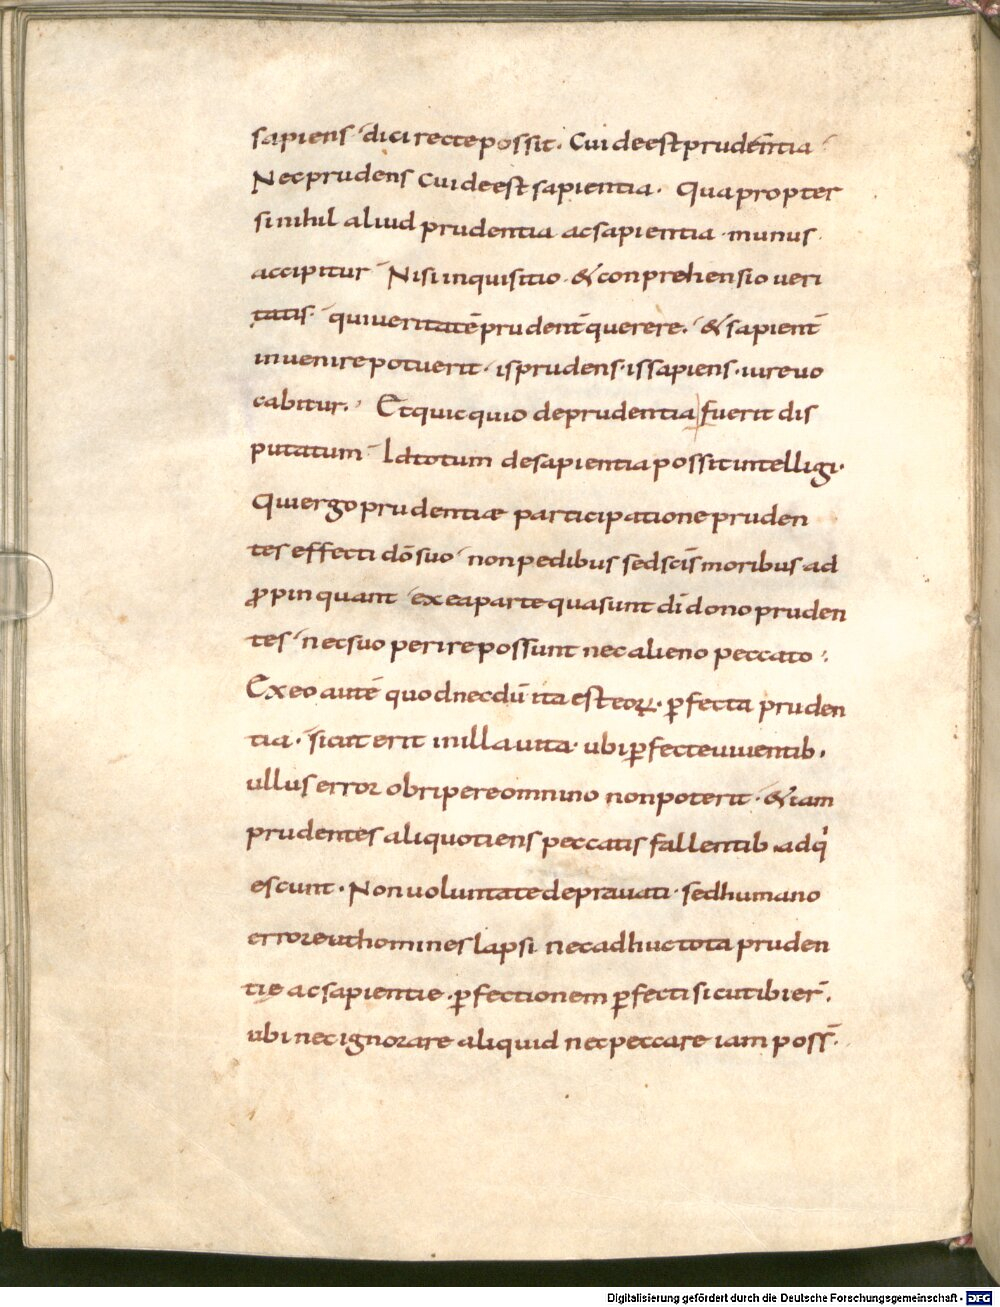 sapiens dici recte possit. Cui deest prudentia
Nec prudens cui deest sapientia. Qua propter
si nihil aliud prudentia ac sapientia munus
accipitur Nisi inquisitio & conprehensio veri
tatis. qui veritatē prudent̄ querere. & sapient̄
invenire potuerit. is prudens. is sapiens. iure vo
cabitur. Et quicquid de prudentia fuerit dis
putatum Id totum de sapientia possit intelligi.
Qui ergo prudentiae participatione pruden
tes effecti dō suo non pedibus sed scīs moribus ad
ꝓpinquant ex ea parte qua sunt dī dono pruden
tes nec suo perire possunt nec alieno peccato :
Ex eo autē quod necdū ita est eoꝝ. ꝑfecta pruden
tia. sicut erit in illa vita. ubi ꝑfecte viventib.
ullus error obripere omnino non poterit. & iam
prudentes aliquotiens peccatis fallentib. adqͥ
escunt. Non voluntate depravati. sed humano
errore ut homines lapsi nec adhuc tota pruden
tie ac sapientie. ꝑfectionem ꝑfecti sicut ibi er̄.
ubi nec ignorare aliquid nec peccare iam poss̄.
Digitalisierung gefördert durch die Deutsche Forschungsgemeinschaft - DFG